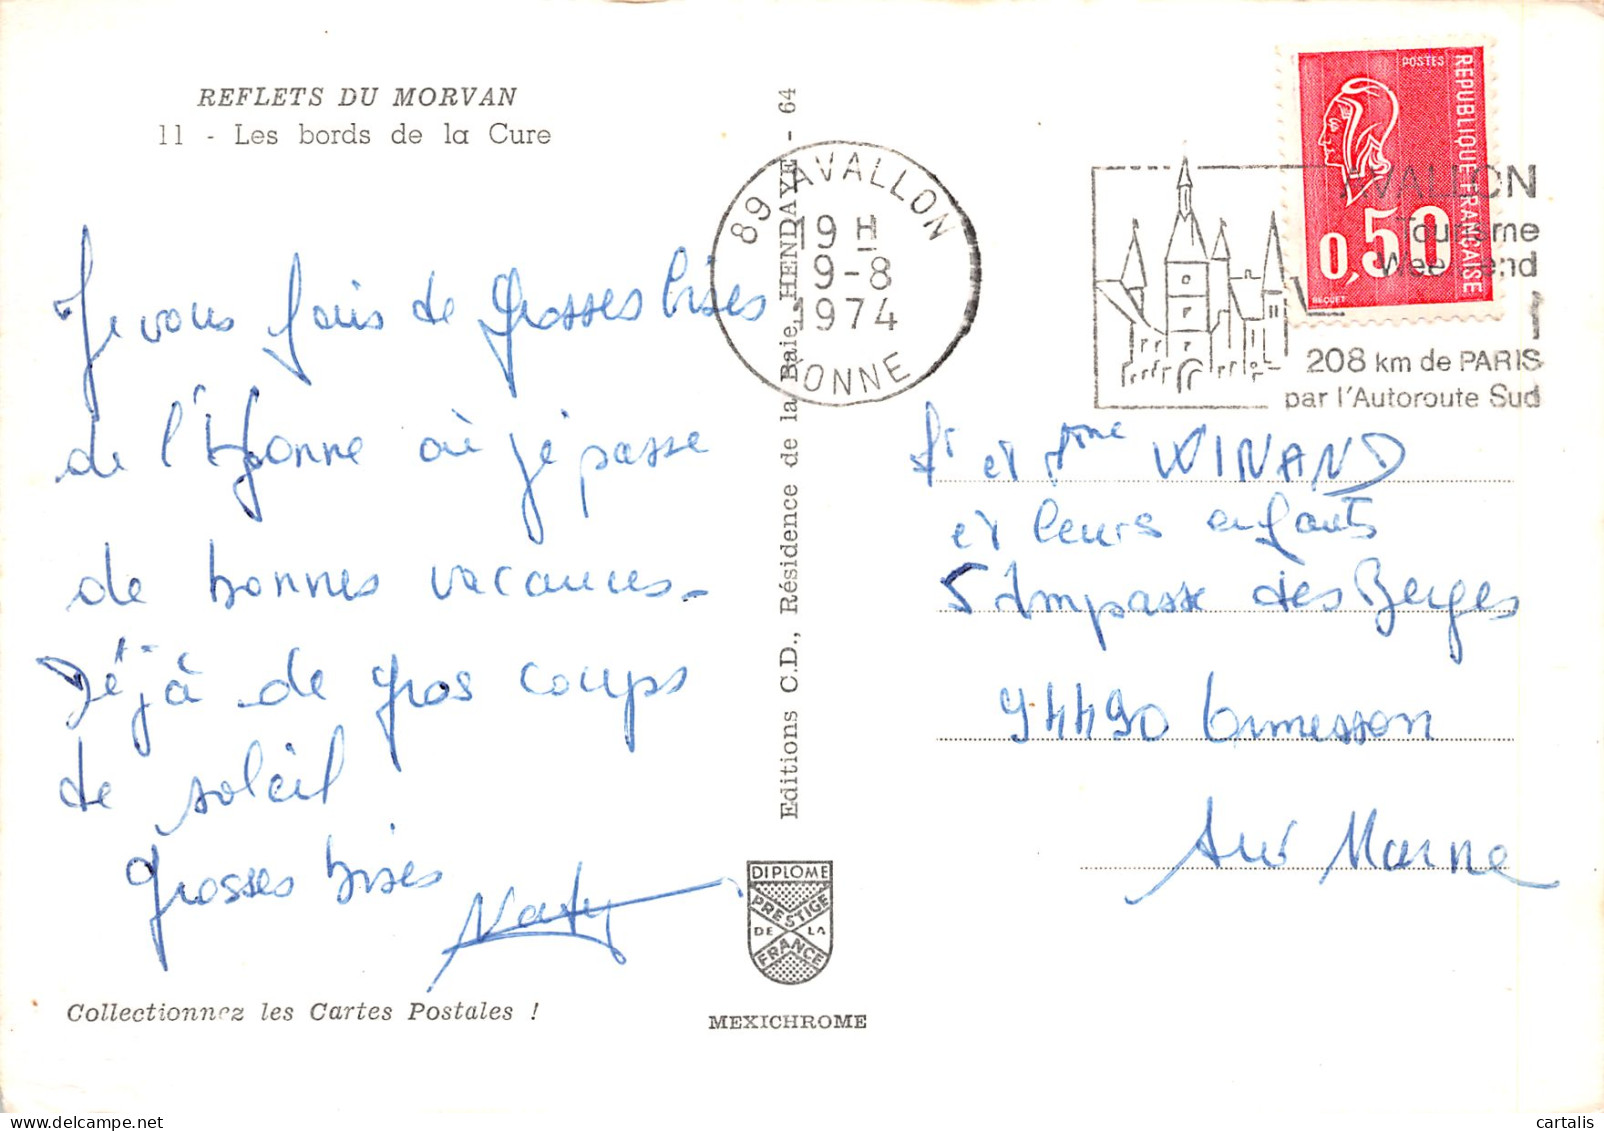 REFLETS DU MORVAN
11 - Les bords de la Cure
Je vous fais de grosses bises
de l'Yonne où je passe
de bonnes vacances.
Déjà de gros coups
de soleil
Grosses bises
Naty
Collectionnez les Cartes Postales !
Editions C.D., Résidence de la Baie, HENDAYE - 64
DIPLOME
PRESTIGE
DE LA
FRANCE
MEXICHROME
89 AVALLON
19 H
9-8
1974
YONNE
AVALLON
Tourisme
Week end
208 km de PARIS
par l'Autoroute Sud
POSTES
REPUBLIQUE FRANCAISE
0,50
BEQUET
Mr et Mme WINAND
et leurs enfants
5 Impasse des Berges
94490 Ormesson
sur Marne
cartalis www.delcampe.net